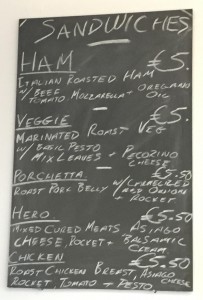 SANDWICHES
HAM €5.
ITALIAN ROASTED HAM
W/ BEEF OREGANO
TOMATO MOZZARELLA - OIL
VEGGIE €5.
MARINATED ROAST VEG
W/ BASIL PESTO
MIX LEAVES + PECORINO CHEESE
PORCHETTA €5.50
ROAST PORK BELLY W/ CARAMELIZED RED ONIONS + ROCKET
HERO €5.50
MIXED CURED MEATS ASINGO
CHEESE, ROCKET + BALSAMIC CREAM
CHICKEN €5.50
ROAST CHICKEN BREAST, ASINGO CHEESE
ROCKET TOMATO + PESTO,